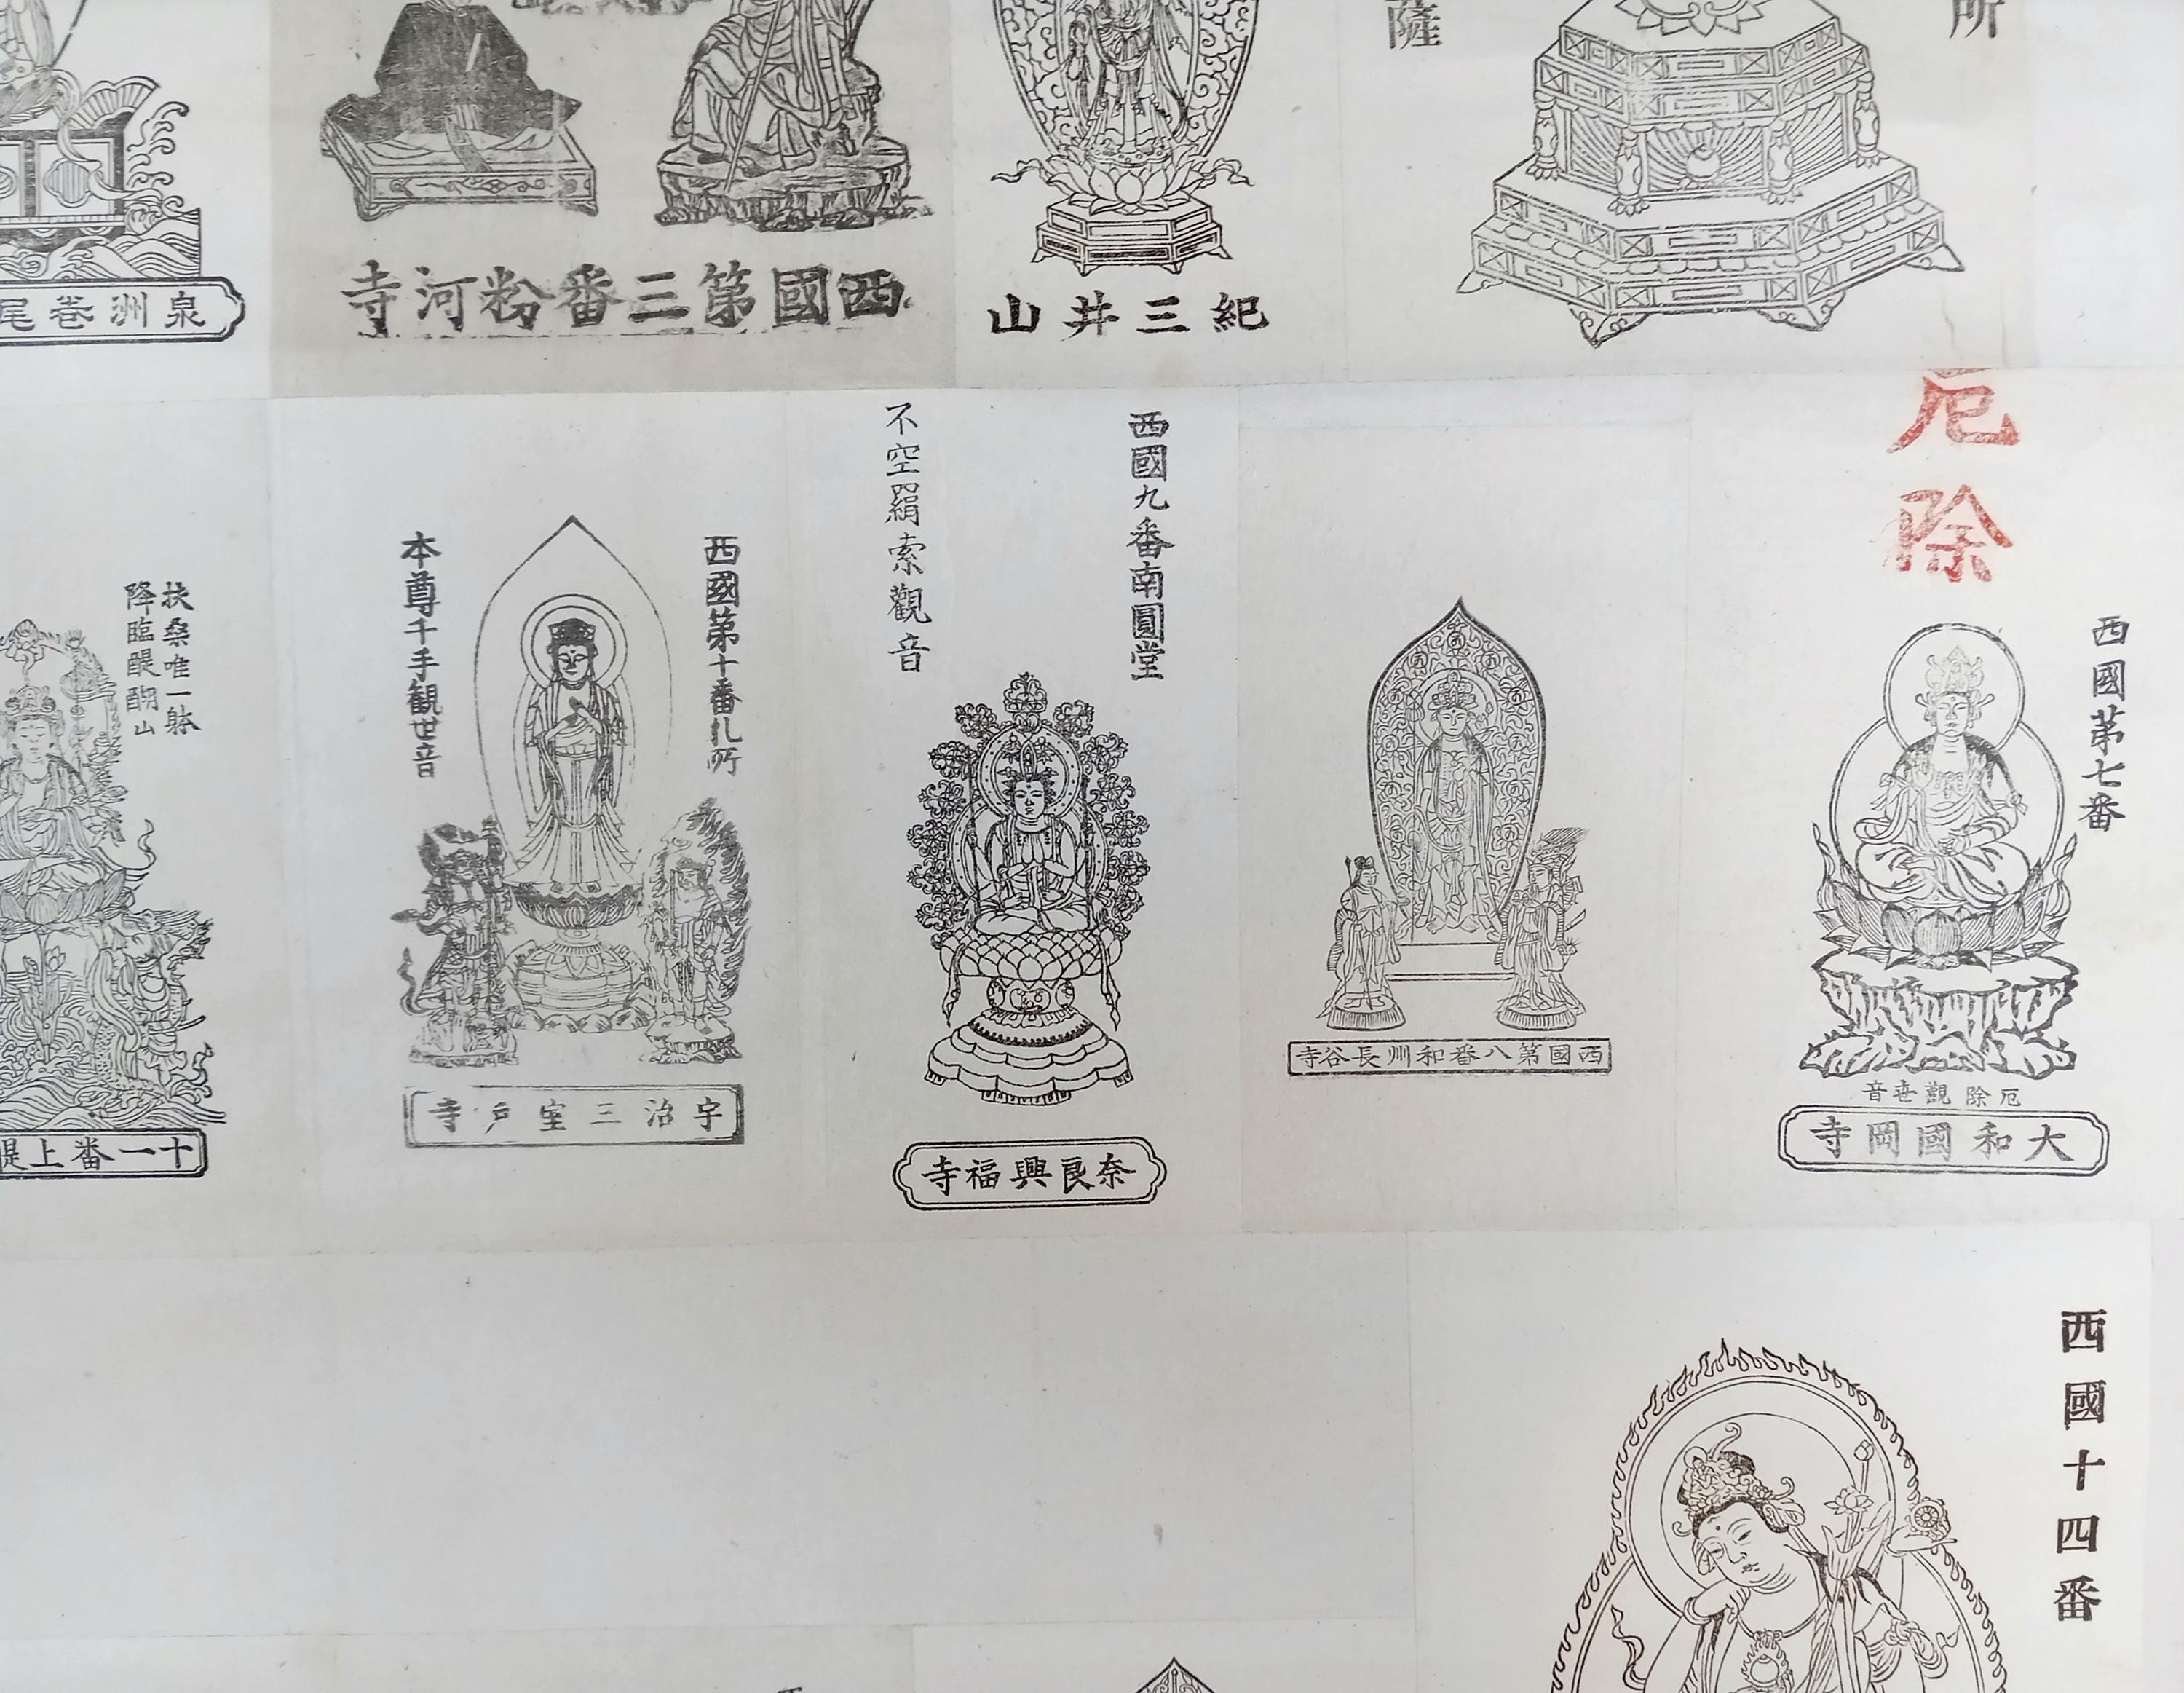 薩
所
泉洲巻尾
西國第三番粉河寺
紀三井山
厄除
西國第七番
厄除觀世音
大和國岡寺
西國第八番和州長谷寺
西國九番南圓堂
不空羂索觀音
奈良興福寺
西國第十番札所
本尊千手観世音
宇治三室戸寺
扶桑唯一躰
降臨醍醐山
十一番上醍
西國十四番